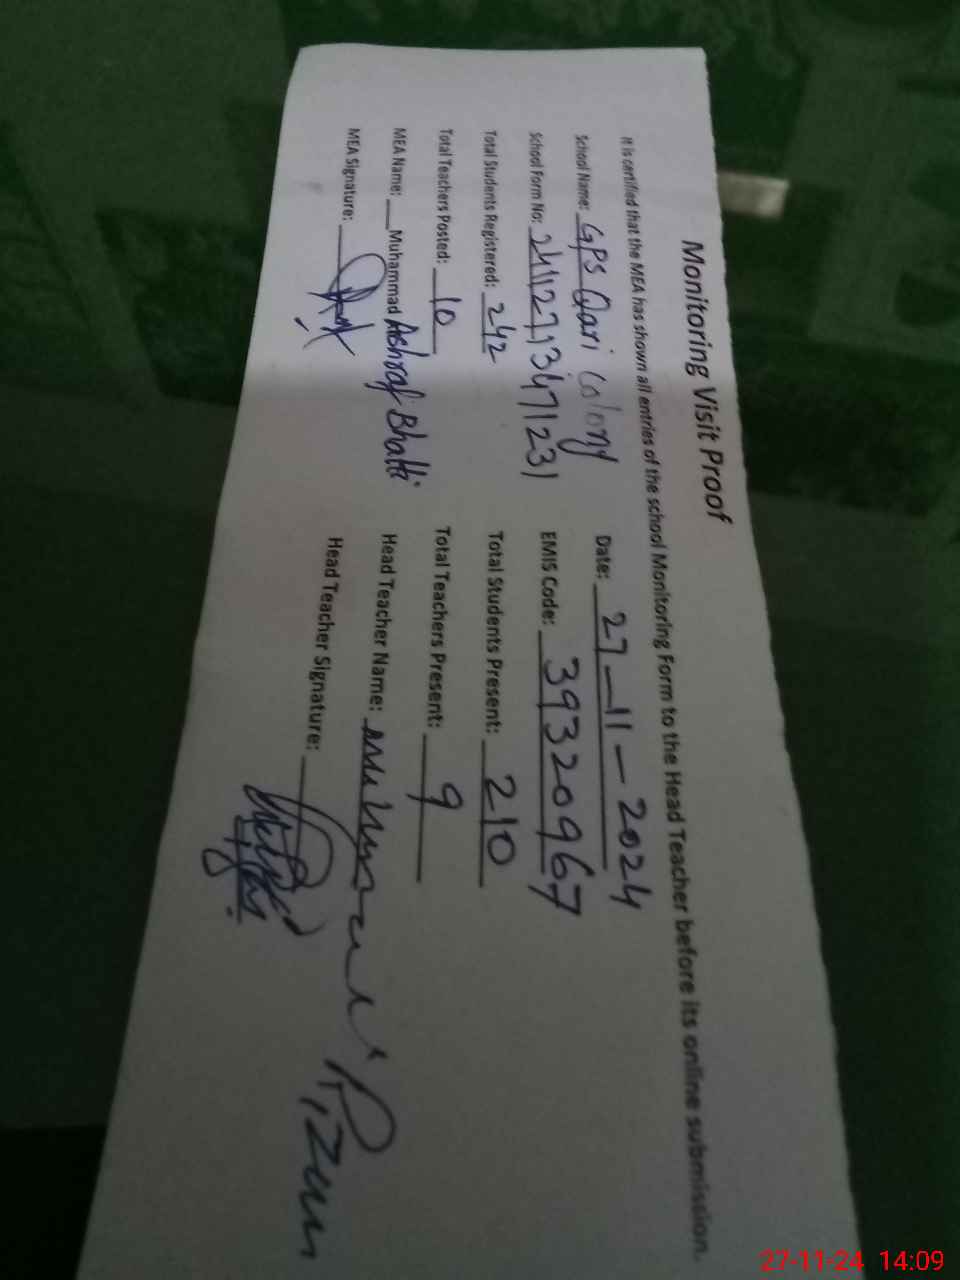 Monitoring Visit Proof
It is certified that the MEA has shown all entries of the school Monitoring Form to the Head Teacher before its online submission.
School Name: GPS Qari Colony Date: 27-11-2024
School Form No: 24112713471231 EMIS Code: 39320967
Total Students Registered: 242 Total Students Present: 210
Total Teachers Posted: 10 Total Teachers Present: 9
MEA Name: Muhammad Ashraf Bhatti Head Teacher Name:
MEA Signature: Head Teacher Signature:
27-11-24 14:09